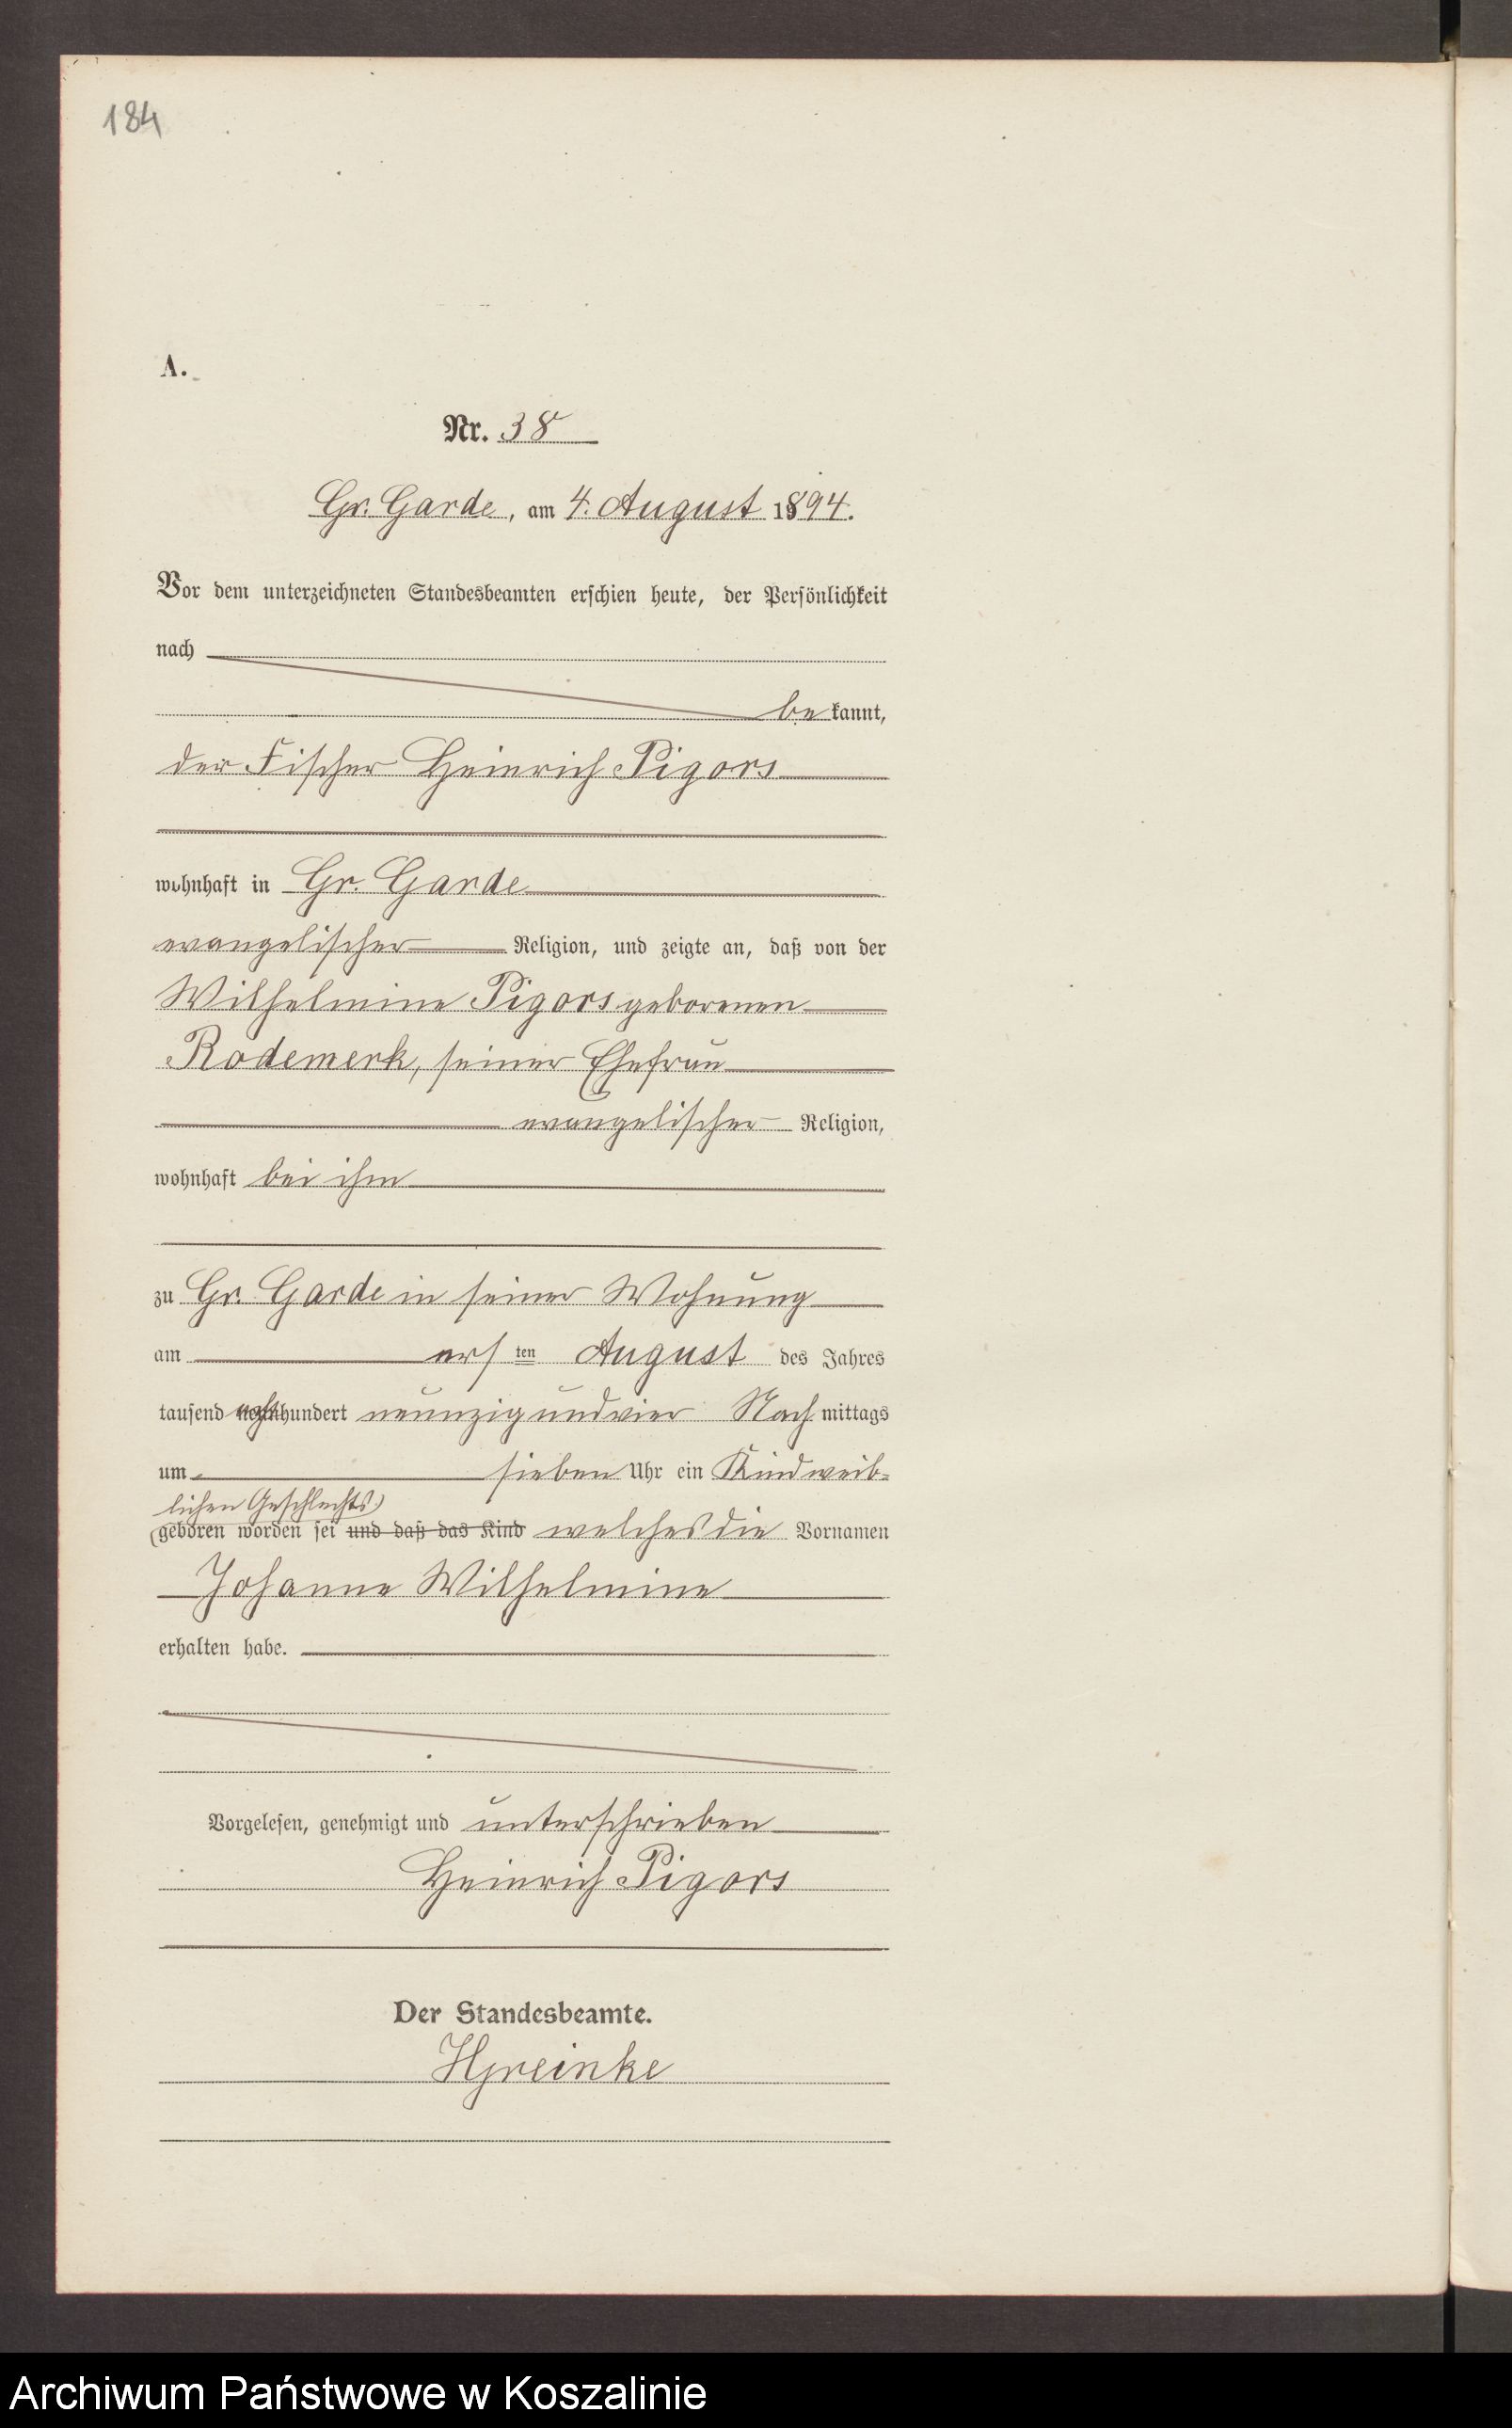 184
A.
Nr. 38
Gr. Garde, am 4. August 1894.
Vor dem unterzeichneten Standesbeamten erschien heute, der Persönlichkeit
nach
be kannt,
der Fischer Heinrich Pigors
wohnhaft in Gr. Garde
evangelischer Religion, und zeigte an, daß von der
Wilhelmine Pigors geborenen
Rodemerk, seiner Ehefrau
evangelischer Religion,
wohnhaft bei ihm
zu Gr. Garde in seiner Wohnung
am ers ten August des Jahres
tausend acht hundert neunzig und vier Nach mittags
um sieben Uhr ein Kind weib-
lichen Geschlechts
geboren worden sei und daß das Kind welches die Vornamen
Johanne Wilhelmine
erhalten habe.
Vorgelesen, genehmigt und unterschrieben
Heinrich Pigors
Der Standesbeamte.
Archiwum Państwowe w Koszalinie